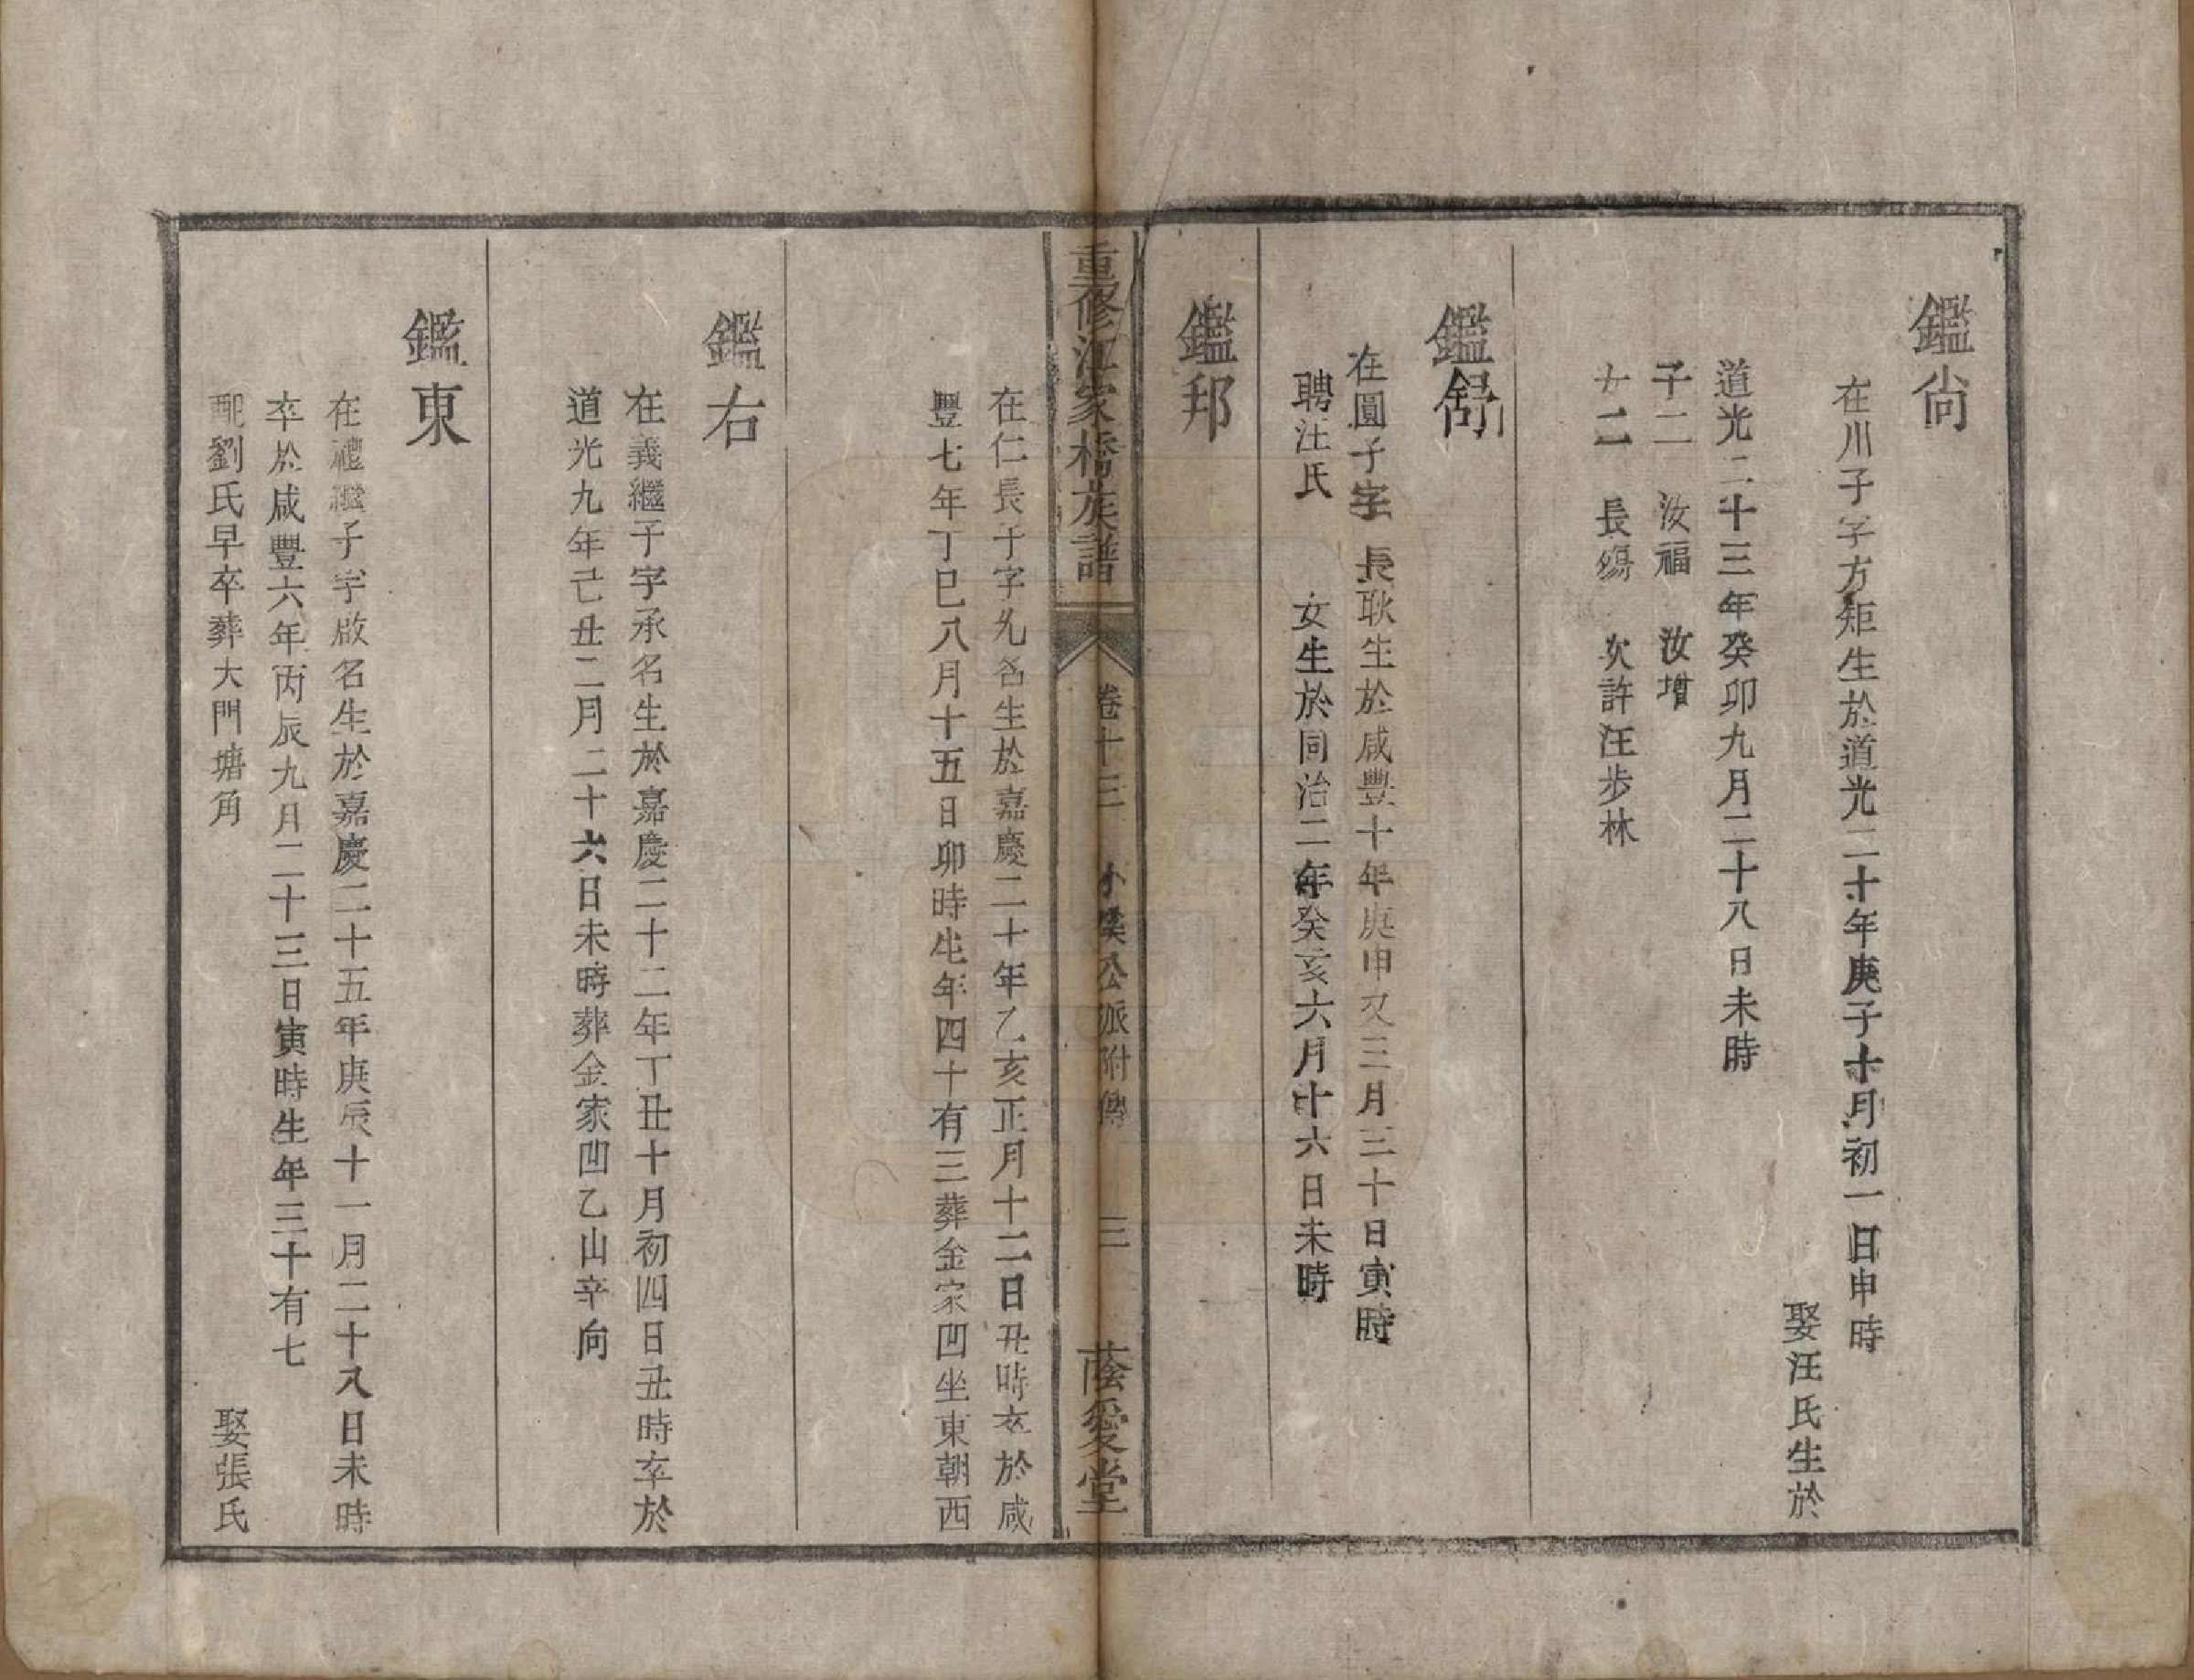 鑑尙
在川子字方矩生於道光二十年庚子十月初一日申時
娶汪氏生於
道光二十三年癸卯九月二十八日未時
子二 汝福 汝增
女二 長殤 次許汪步林
鑑舒
在圓子字長耿生於咸豐十年庚申又三月三十日寅時
聘汪氏 女生於同治二年癸亥六月十六日未時
鑑邦
重修江家橋族譜 卷十三 小溪公派附傳 三 蔭愛堂
在仁長子字允名生於嘉慶二十年乙亥正月十二日丑時卒於咸
豐七年丁巳八月十五日卯時生年四十有三葬金家凹坐東朝西
鑑右
在義繼子字承名生於嘉慶二十二年丁丑十月初四日丑時卒於
道光九年己丑二月二十六日未時葬金家凹乙山辛向
鑑東
在禮繼子字啟名生於嘉慶二十五年庚辰十一月二十八日未時
卒於咸豐六年丙辰九月二十三日寅時生年三十有七
娶張氏
配劉氏早卒葬大門塘角